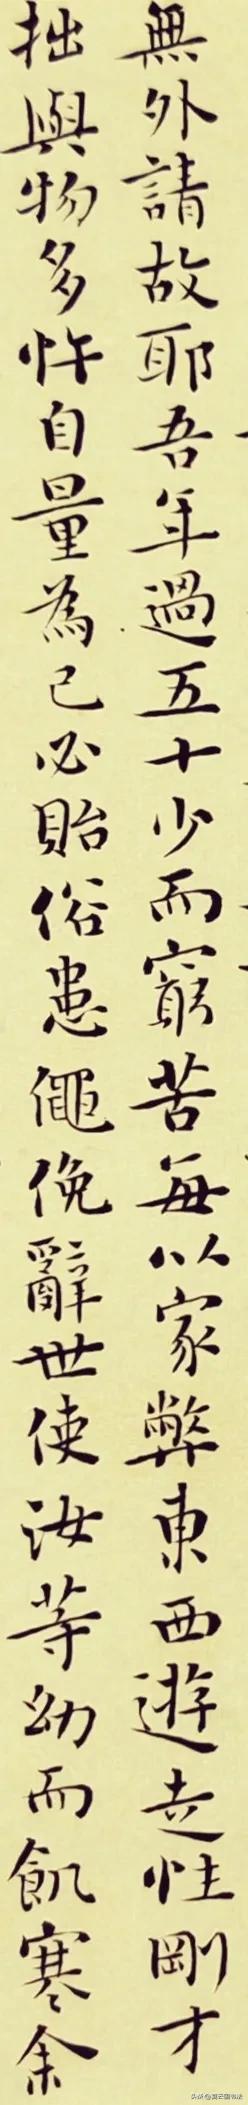 無外請故耶吾年過五十少而窮苦每以家弊東西遊走性剛才
拙與物多忤自量為己必貽俗患僶俛辭世使汝等幼而飢寒余